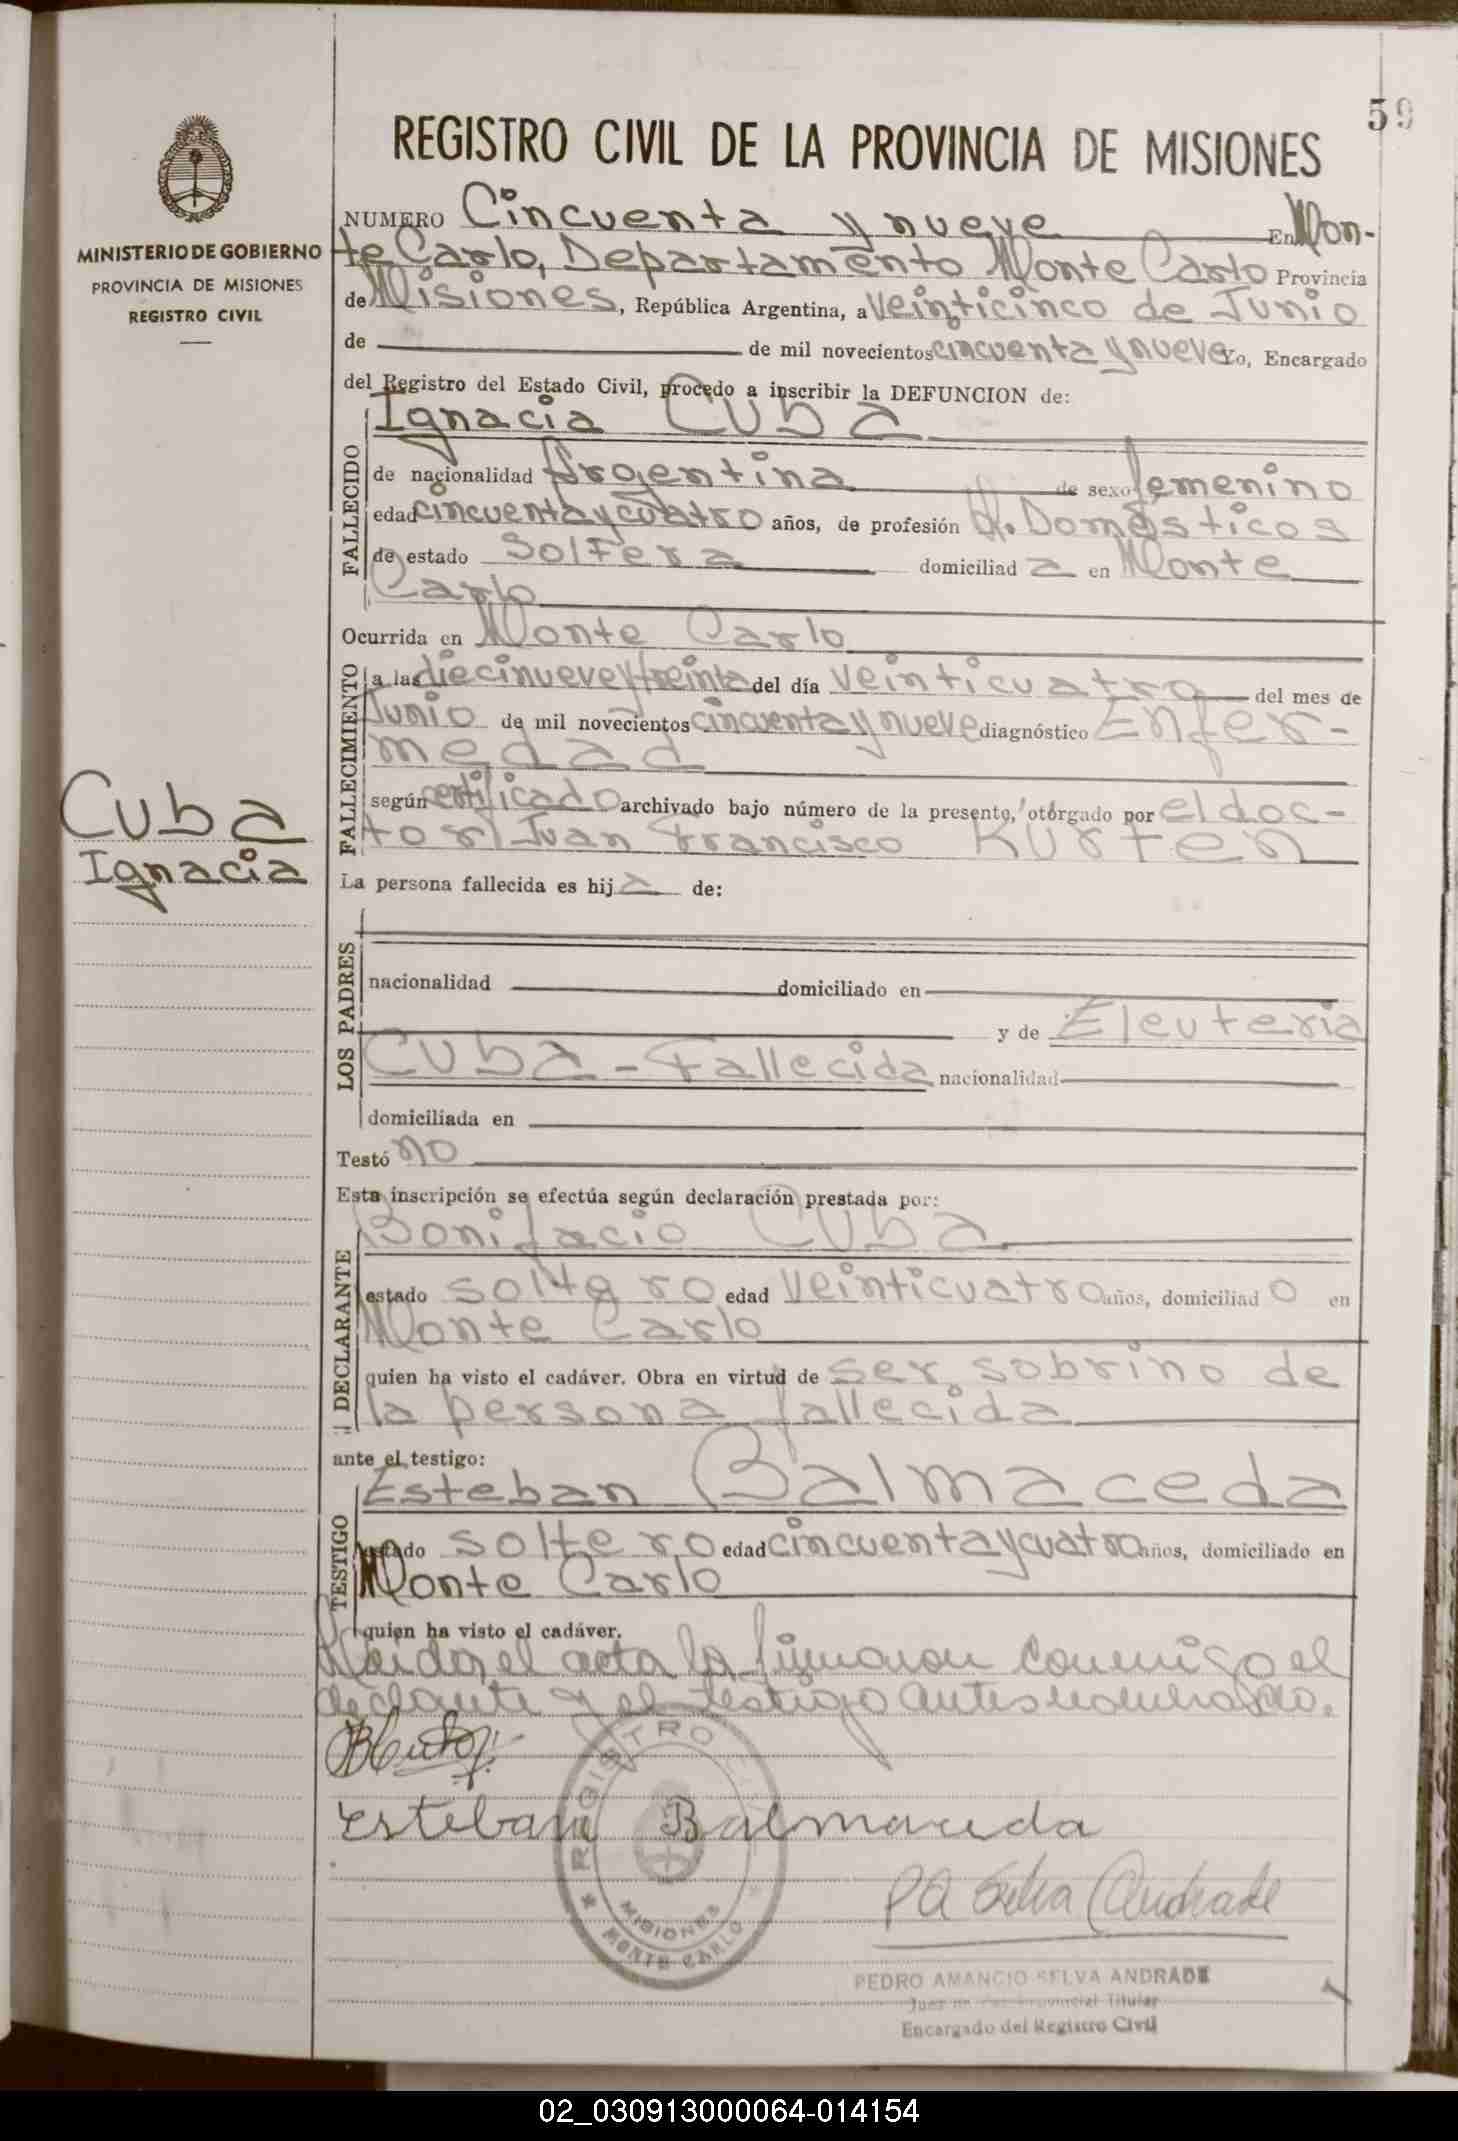 59
REGISTRO CIVIL DE LA PROVINCIA DE MISIONES
MINISTERIO DE GOBIERNO
PROVINCIA DE MISIONES
REGISTRO CIVIL
NUMERO Cincuenta y nueve En Mon-
te Carlo, Departamento Monte Carlo Provincia
de Misiones, República Argentina, a veinticinco de Junio
de de mil novecientos cincuenta y nueve Yo, Encargado
del Registro del Estado Civil, procedo a inscribir la DEFUNCION de:
FALLECIDO
Ignacia Cuba
de nacionalidad Argentina de sexo femenino
edad cincuenta y cuatro años, de profesión Q. Domésticos
de estado Soltera domiciliad a en Monte
Carlo
Ocurrida en Monte Carlo
FALLECIMIENTO
a las diecinueve y treinta del día veinticuatro del mes de
Junio de mil novecientos cincuenta y nueve diagnóstico Enfer-
medad
según certificado archivado bajo número de la presente, otorgado por el doc-
tor Juan Francisco Kurten
Cuba
Ignacia
La persona fallecida es hij a de:
LOS PADRES
nacionalidad domiciliado en
y de Eleuteria
Cuba - Fallecida nacionalidad
domiciliada en
Testó no
Esta inscripción se efectúa según declaración prestada por:
DECLARANTE
Bonifacio Cuba
estado soltero edad veinticuatro años, domiciliad o en
Monte Carlo
quien ha visto el cadáver. Obra en virtud de ser sobrino de
la persona fallecida
ante el testigo:
TESTIGO
Esteban Balmaceda
estado soltero edad cincuenta y cuatro años, domiciliado en
Monte Carlo
quien ha visto el cadáver.
Leida el acta la firmaron conmigo el
declante y el testigo antes nombrado.
Esteban Balmaceda
REGISTRO CIVIL
MISIONES
MONTE CARLO
PA Selva Andrade
PEDRO AMANCIO SELVA ANDRADE
Juez de Paz Provincial Titular
Encargado del Registro Civil
02_030913000064-014154